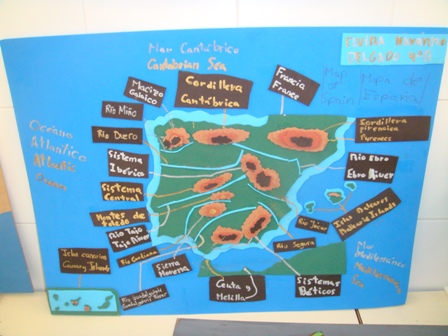 Mar Cantábrico
Cantabrian Sea
Map of
Spain
Mapa de
España
Macizo
Galaico
Cordillera
Cantábrica
Francia
France
Río Miño
Río Duero
Sistema
Ibérico
Sistema
Central
Montes de
Toledo
Río Tajo
Tajo River
Río Guadiana
Sierra
Morena
Ceuta y
Melilla
Sistemas
Béticos
Río Segura
Río Júcar
Islas Baleares
Balearic Islands
Río Ebro
Ebro River
Cordillera
Pirenaica
Pyrenees
Océano
Atlántico
Atlantic
Ocean
Mar
Mediterráneo
Mediterranean
Sea
Islas Canarias
Canary Islands